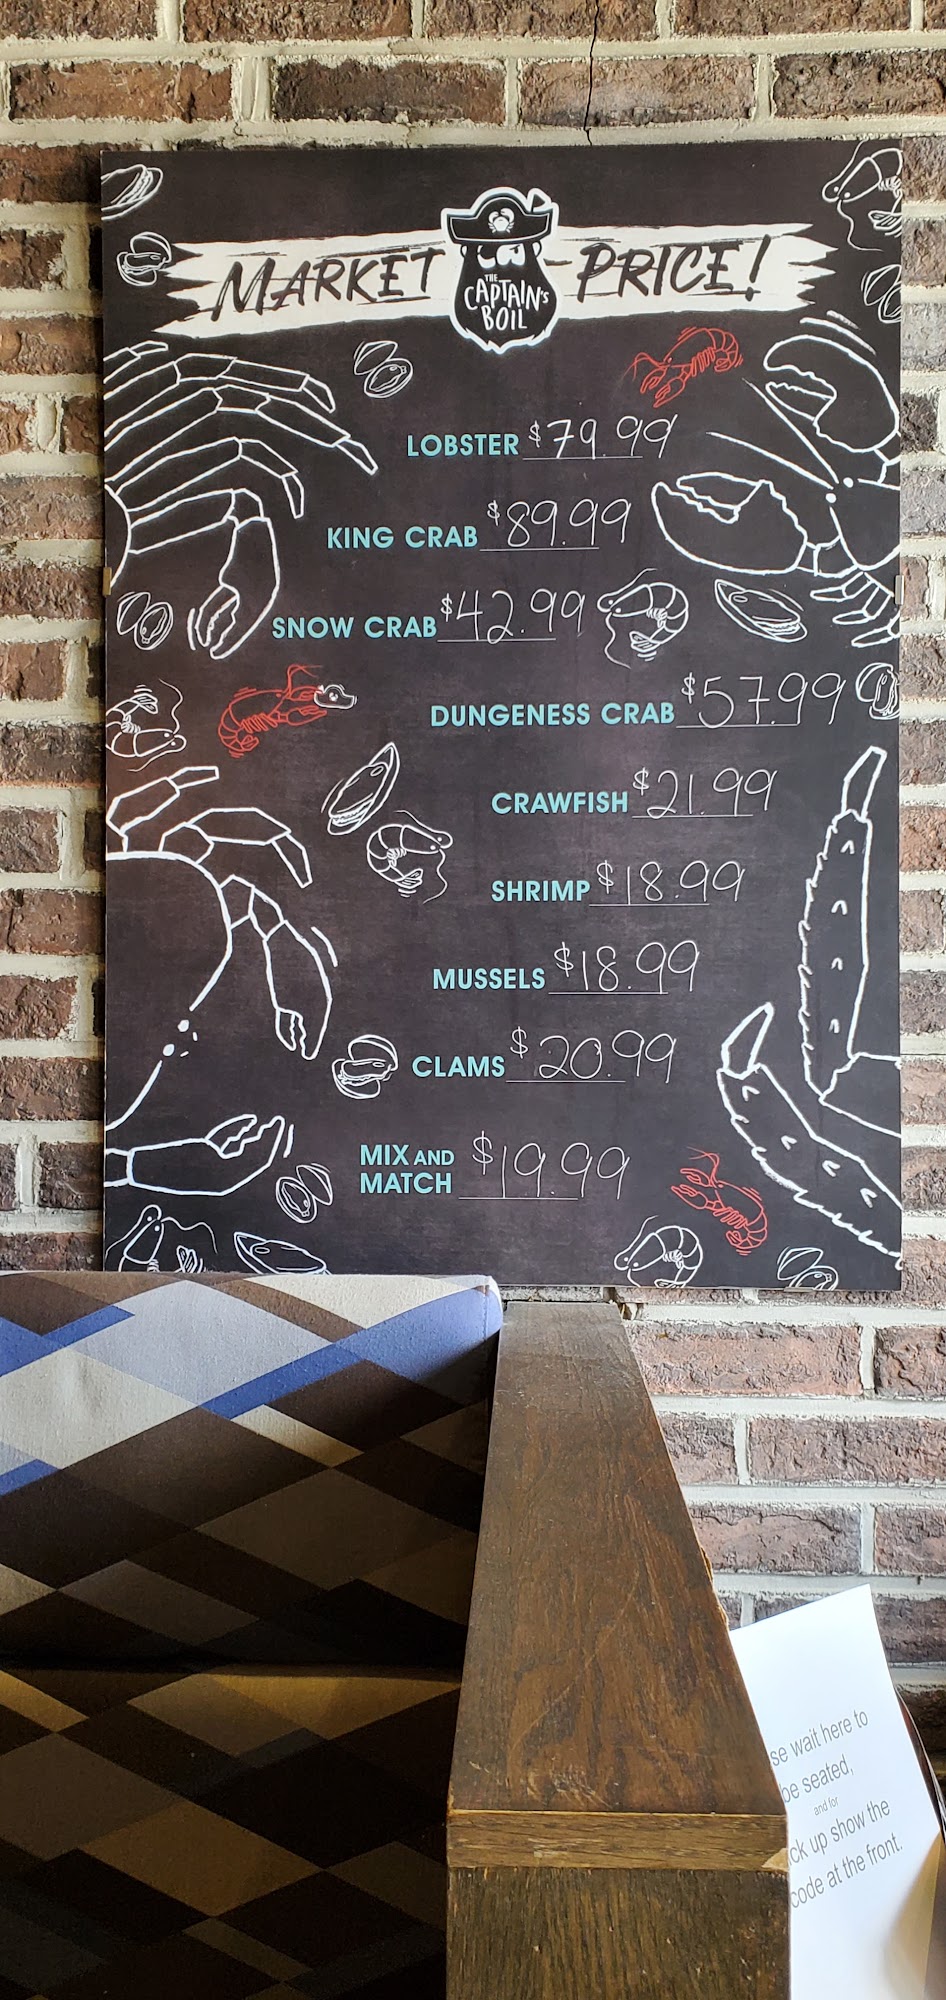 MARKET PRICE!
THE
CAPTAIN'S
BOIL
LOBSTER $79.99
KING CRAB $89.99
SNOW CRAB $42.99
DUNGENESS CRAB $57.99
CRAWFISH $21.99
SHRIMP $18.99
MUSSELS $18.99
CLAMS $20.99
MIX AND
MATCH $19.99
wait here to
be seated,
and for
up show the
code at the front.